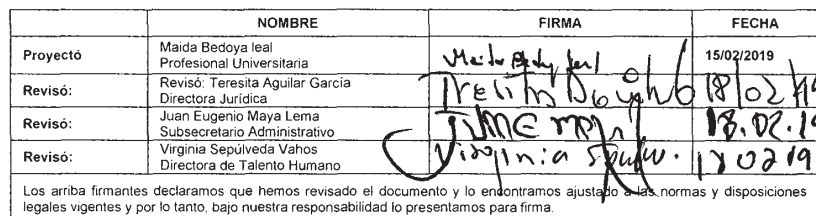 NOMBRE FIRMA FECHA
Proyectó Maida Bedoya leal
Profesional Universitaria Maida Bedoya leal 15/02/2019
Revisó: Revisó: Teresita Aguilar García
Directora Jurídica 18/02/19
Revisó: Juan Eugenio Maya Lema
Subsecretario Administrativo 18.02.19
Revisó: Virginia Sepúlveda Vahos
Directora de Talento Humano Virginia 18 02 19
Los arriba firmantes declaramos que hemos revisado el documento y lo encontramos ajustado a las normas y disposiciones
legales vigentes y por lo tanto, bajo nuestra responsabilidad lo presentamos para firma.